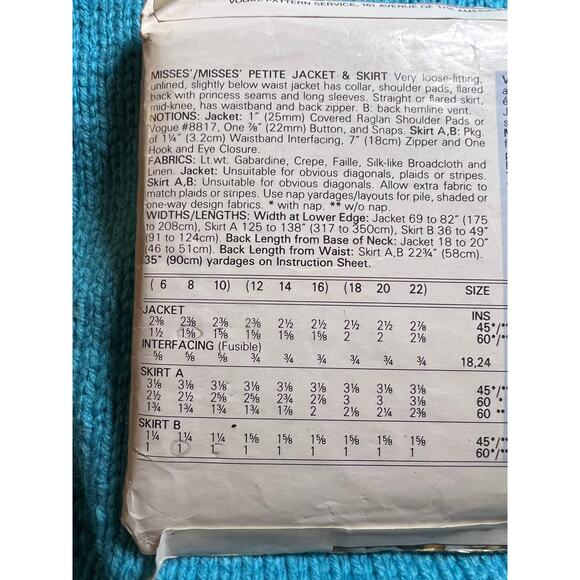 VOGUE PATTERN SERVICE, 161 AVENUE OF THE AMERI
MISSES'/MISSES' PETITE JACKET & SKIRT Very loose-fitting,
unlined, slightly below waist jacket has collar, shoulder pads, flared
back with princess seams and long sleeves. Straight or flared skirt,
mid-knee, has waistband and back zipper. B: back hemline vent.
NOTIONS: Jacket: 1" (25mm) Covered Raglan Shoulder Pads or
Vogue #8817, One ⅞" (22mm) Button, and Snaps. Skirt A,B: Pkg.
of 1¼" (3.2cm) Waistband Interfacing, 7" (18cm) Zipper and One
Hook and Eye Closure.
FABRICS: Lt.wt. Gabardine, Crepe, Faille, Silk-like Broadcloth and
Linen. Jacket: Unsuitable for obvious diagonals, plaids or stripes.
Skirt A,B: Unsuitable for obvious diagonals. Allow extra fabric to
match plaids or stripes. Use nap yardages/layouts for pile, shaded or
one-way design fabrics. * with nap. ** w/o nap.
WIDTHS/LENGTHS: Width at Lower Edge: Jacket 69 to 82" (175
to 208cm), Skirt A 125 to 138" (317 to 350cm), Skirt B 36 to 49"
(91 to 124cm). Back Length from Base of Neck: Jacket 18 to 20"
(46 to 51cm). Back Length from Waist: Skirt A,B 22¾" (58cm).
35" (90cm) yardages on Instruction Sheet.
( 6 8 10) (12 14 16) (18 20 22) SIZE
JACKET INS
2⅜ 2⅜ 2⅜ 2⅜ 2½ 2½ 2½ 2½ 2⅞ 45*/**
1½ 1⅝ 1⅝ 1⅝ 1⅝ 1⅝ 2 2 2⅛ 60*/**
INTERFACING (Fusible)
⅝ ⅝ ⅝ ¾ ¾ ¾ ¾ ¾ ¾ 18,24
SKIRT A
3⅛ 3⅛ 3⅛ 3⅛ 3⅛ 3⅛ 3⅛ 3⅛ 3⅛ 45*/**
2½ 2½ 2⅝ 2⅝ 2¾ 2⅞ 3 3 3⅛ 60 *
1¾ 1¾ 1¾ 1¾ 1⅞ 2 2⅛ 2¼ 2⅜ 60 **
SKIRT B
1¼ 1¼ 1¼ 1⅝ 1⅝ 1⅝ 1⅝ 1⅝ 1⅝ 45*/**
1 1 1 1 1 1 1 1 1 60*/**